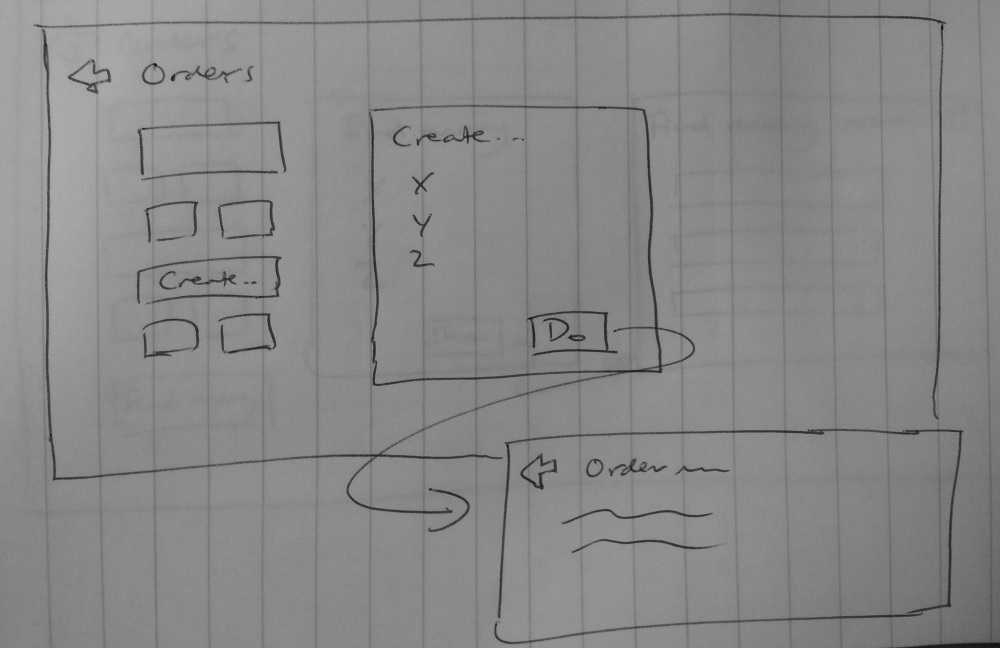 Orders
Create...
Create...
X
Y
Z
Do
Order